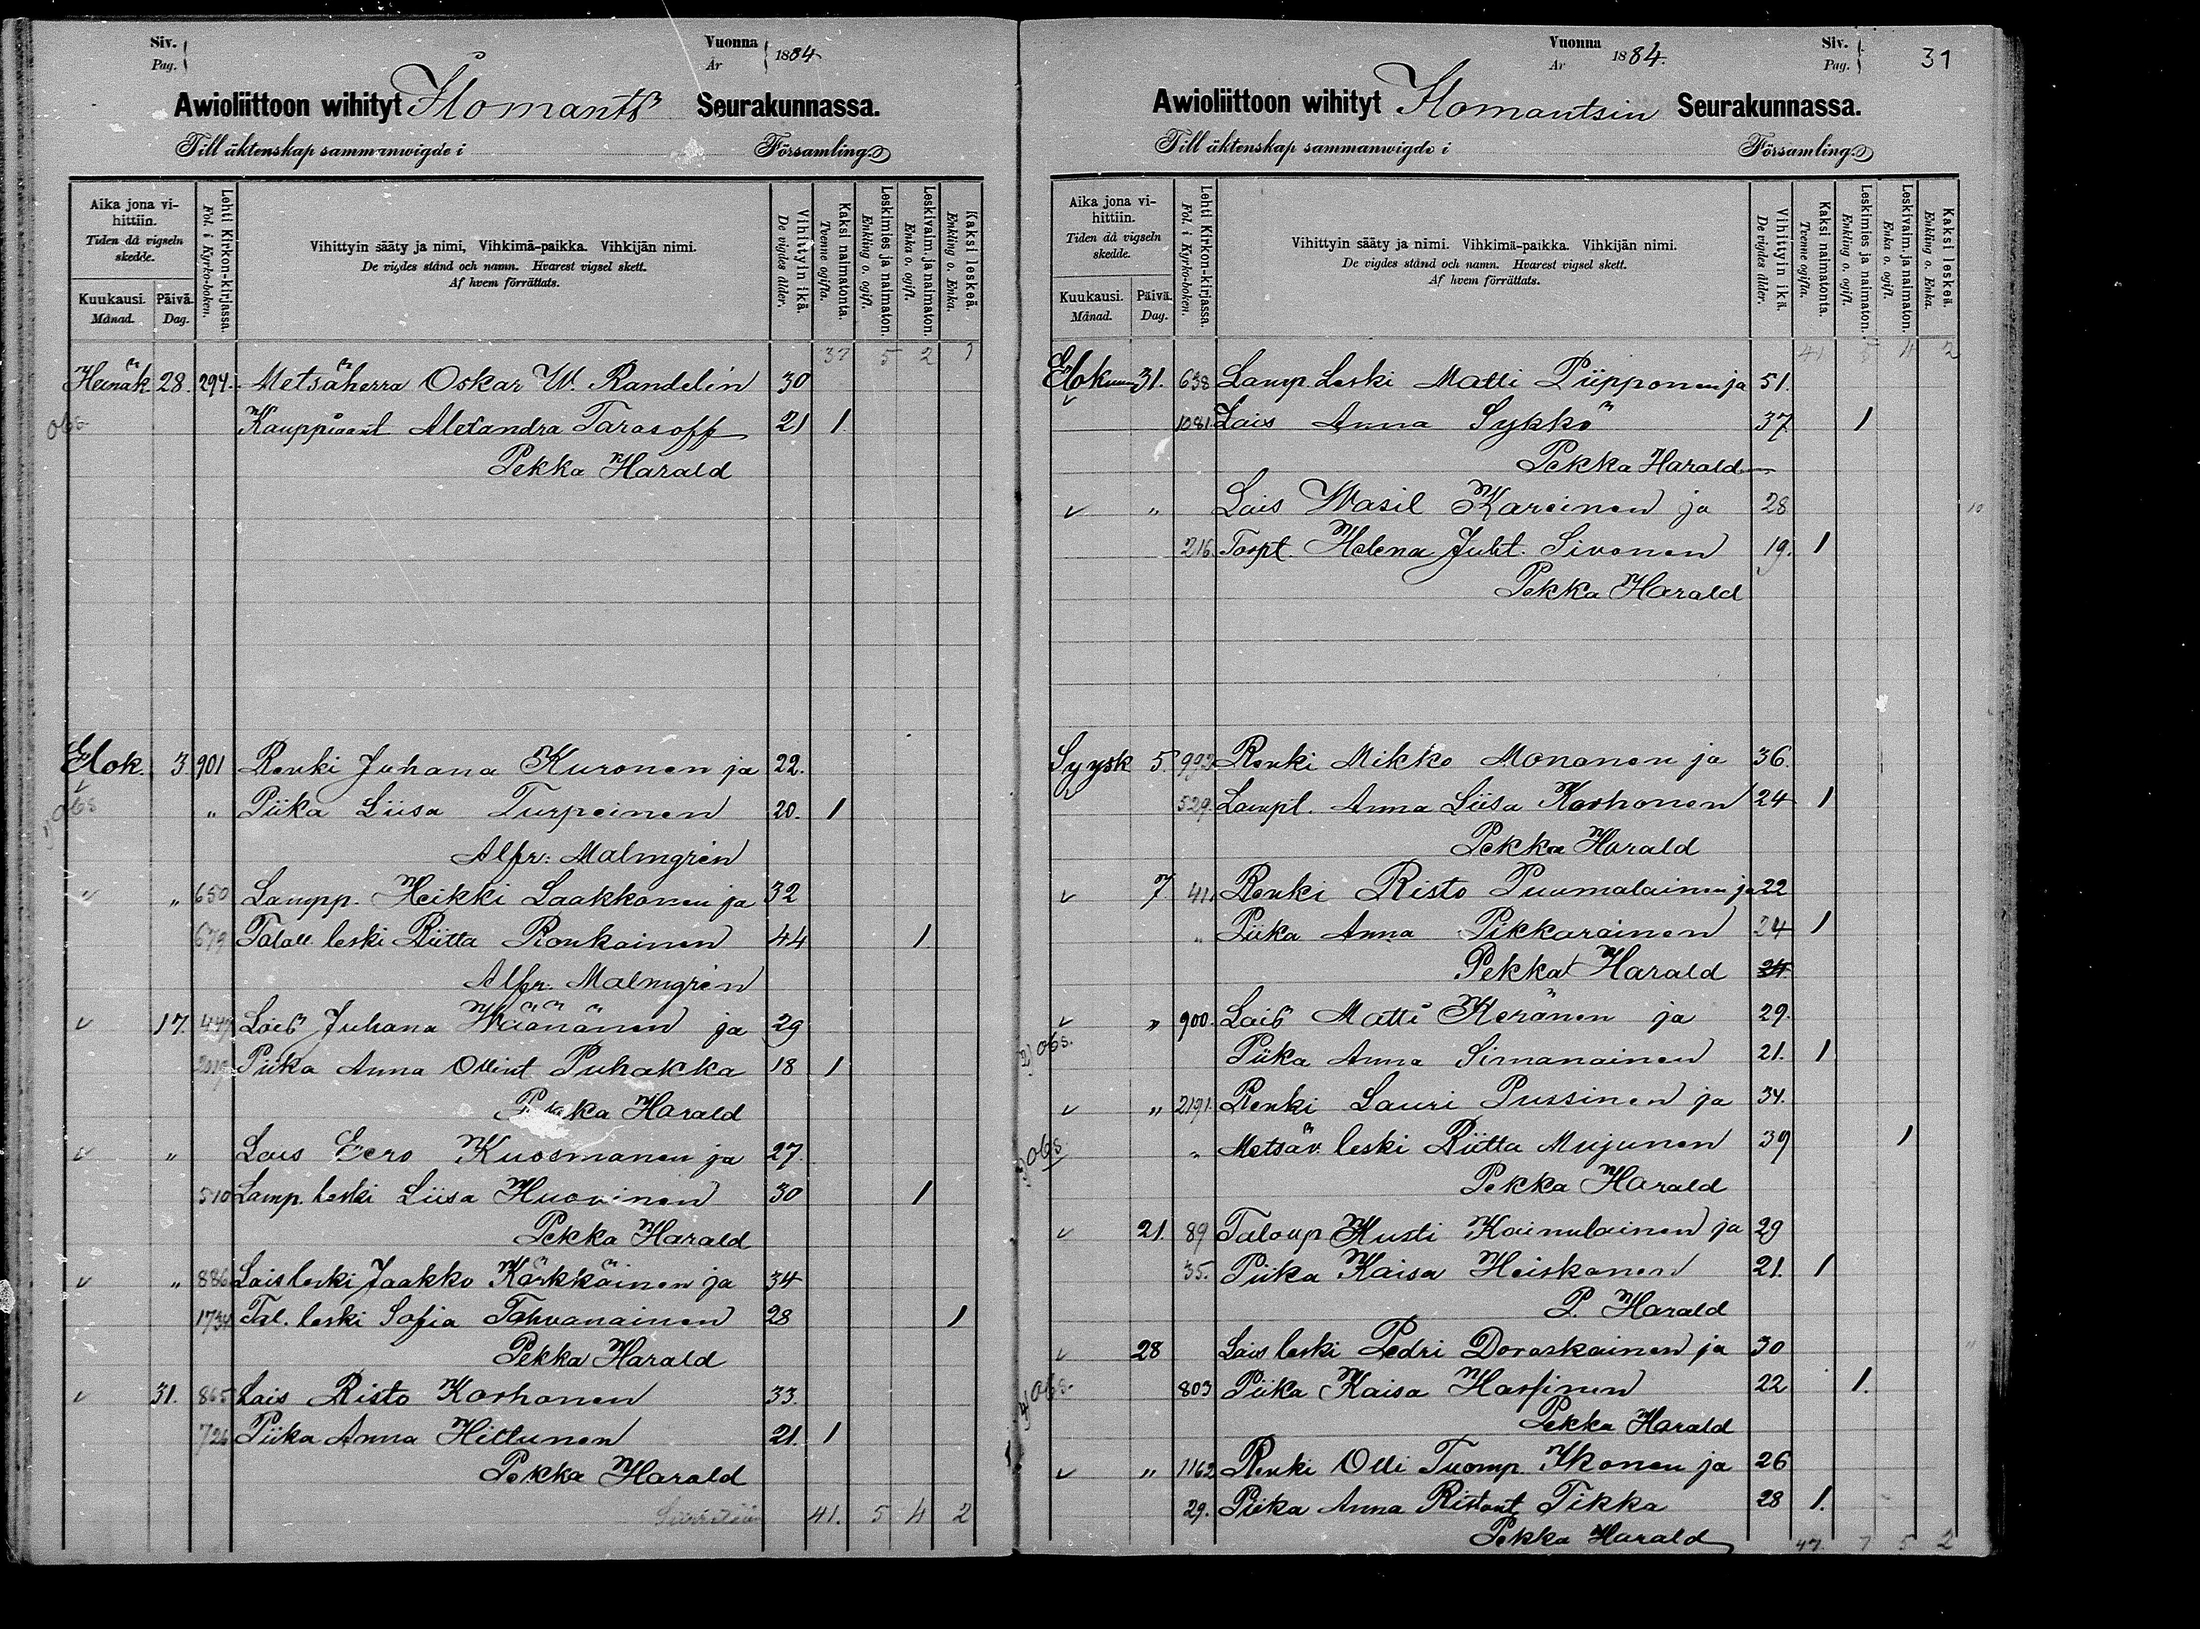 Siv.
Pag.
Vuonna
År
1884
Awioliittoon wihityt Ilomants Seurakunnassa.
Till äktenskap sammanwigde i Församling.
Aika jona vihittiin.
Tiden då vigseln skedde.
Kuukausi. Månad.
Päivä. Dag.
Lehti Kirkon-kirjassa.
Fol. i Kyrko-boken.
Vihittyin sääty ja nimi, Vihkimä-paikka. Vihkijän nimi.
De vigdes stånd och namn. Hvarest vigsel skett.
Af hvem förrättats.
Vihittyin ikä.
De vigdes ålder.
Kaksi naimatonta.
Tvenne ogifta.
Leskimies ja naimaton.
Enkling o. ogift.
Leskivaim. ja naimaton.
Enka o. ogift.
Kaksi leskeä.
Enkling o. Enka.
37 5 2 1
Heinäk 28. 294. Metsäherra Oskar W. Randelin 30
obs Kauppiaant Alexandra Tarasoff 21 1
Pekka Harald
Elok. 3. 901 Renki Juhana Kuronen ja 22.
obs " Piika Liisa Turpeinen 20. 1
Alfr: Malmgrén
" 650 Lampp. Heikki Laakkonen ja 32
679 Talall. leski Riitta Ronkainen 44 1
Alfr. Malmgrén
17. 447 Lois Juhana Väänänen ja 29
2019 Piika Anna Ollint Puhakka 18 1
Pekka Harald
" Lois Eero Kuosmanen ja 27.
510 Lamp. leski Liisa Huovinen 30 1
Pekka Harald
" 886 Lois leski Jaakko Kärkkäinen ja 34
1734 Tal. leski Sofia Tahvanainen 28 1
Pekka Harald
31. 865 Lois Risto Korhonen 33.
726 Piika Anna Hiltunen 21. 1
Pekka Harald
Siirretään 41. 5 4 2
Vuonna
År
1884.
Siv.
Pag.
31
Awioliittoon wihityt Ilomantsin Seurakunnassa.
Till äktenskap sammanwigde i Församling.
Aika jona vihittiin.
Tiden då vigseln skedde.
Kuukausi. Månad.
Päivä. Dag.
Lehti Kirkon-kirjassa.
Fol. i Kyrko-boken.
Vihittyin sääty ja nimi. Vihkimä-paikka. Vihkijän nimi.
De vigdes stånd och namn. Hvarest vigsel skett.
Af hvem förrättats.
Vihittyin ikä.
De vigdes ålder.
Kaksi naimatonta.
Tvenne ogifta.
Leskimies ja naimaton.
Enkling o. ogift.
Leskivaim. ja naimaton.
Enka o. ogift.
Kaksi leskeä.
Enkling o. Enka.
41 5 4 2
Elokuun 31. 638 Lamp. Leski Matti Piipponen ja 51.
1081 Lois Anna Sykkö 37 1
Pekka Harald
" Lois Wasil Kareinen ja 28
216. Torpt. Helena Juht. Sivonen 19. 1
Pekka Harald
Syysk 5. 993 Renki Mikko Monanen ja 36.
529. Lampt. Anna Liisa Korhonen 24 1
Pekka Harald
7. 41. Renki Risto Puumalainen ja 22
" Piika Anna Pikkarainen 24 1
Pekka Harald 24
" 900. Lois Matti Keränen ja 29.
2) obs. Piika Anna Simanainen 21. 1
" 2191. Renki Lauri Pussinen ja 34.
obs. " Metsäv. leski Riitta Mujunen 39 1
Pekka Harald
21. 89 Taloup. Kusti Kainulainen ja 29
35. Piika Kaisa Heiskanen 21. 1
P. Harald
28 Lois leski Pedri Doroskainen ja 30
4) obs. 803 Piika Kaisa Harsinen 22 1.
Pekka Harald
" 1162 Renki Olli Tuomp. Ikonen ja 26
29. Piika Anna Ristont Tikka 28 1.
Pekka Harald
47. 7 5 2